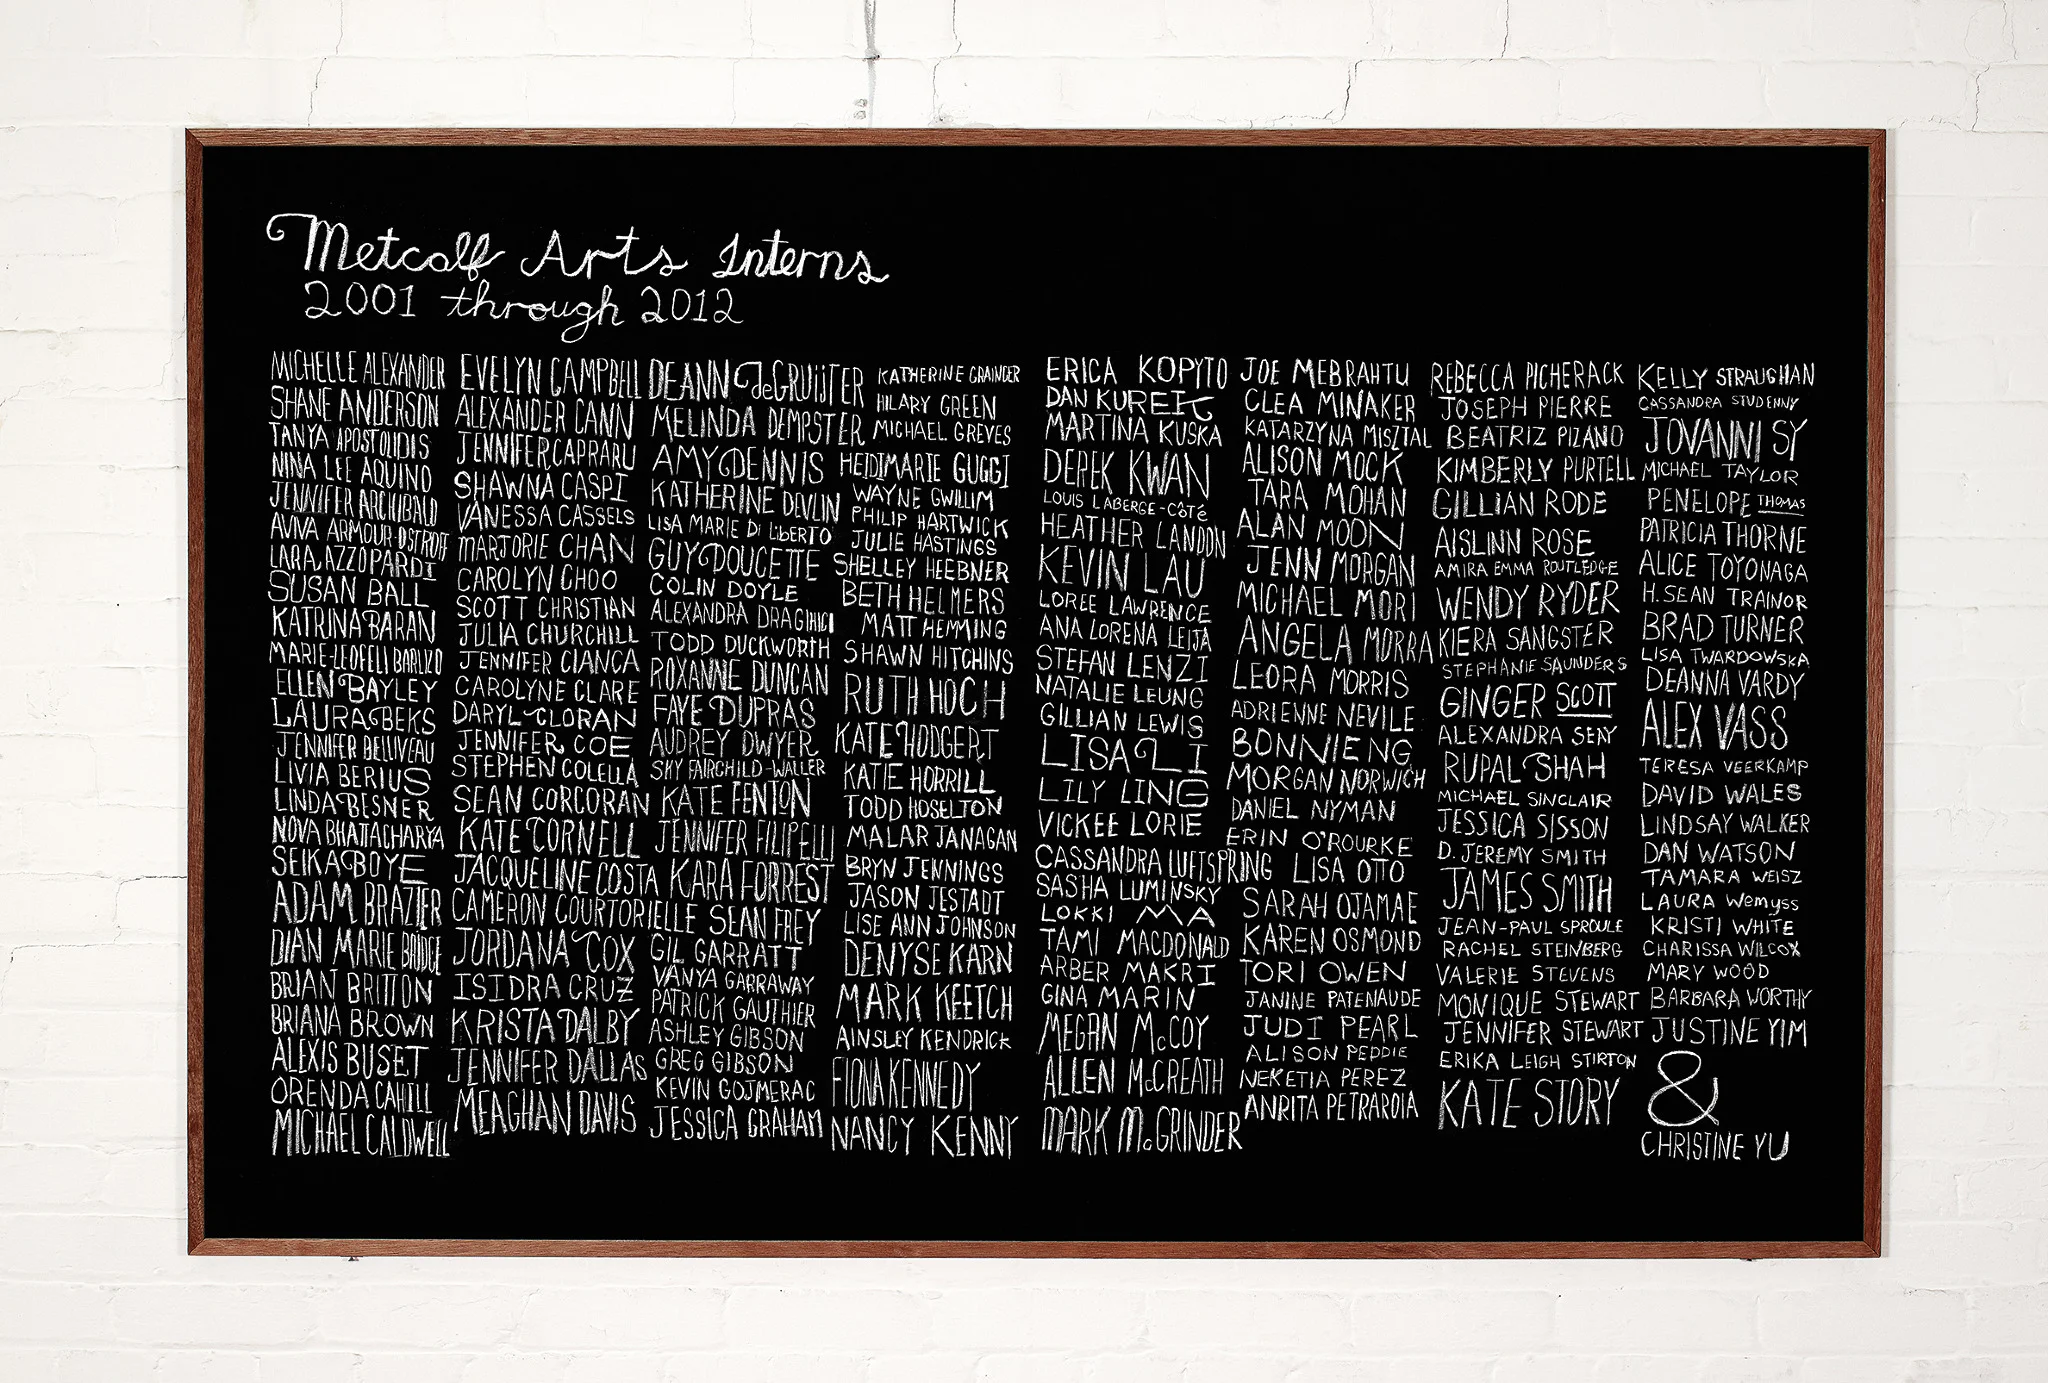 Metcalf Arts Interns
2001 through 2012
MICHELLE ALEXANDER
SHANE ANDERSON
TANYA APOSTOLIDIS
NINA LEE AQUINO
JENNIFER ARCHIBALD
AVIVA ARMOUR-OSTROFF
LARA AZZOPARDI
SUSAN BALL
KATRINA BARAN
MARIE-LEOFELI BARLIZO
ELLEN BAYLEY
LAURA BEKS
JENNIFER BELLIVEAU
LIVIA BERIUS
LINDA BESNER
NOVA BHATTACHARYA
SEIKA BOYE
ADAM BRAZIER
DIAN MARIE BRIDGE
BRIAN BRITTON
BRIANA BROWN
ALEXIS BUSET
ORENDA CAHILL
MICHAEL CALDWELL
EVELYN CAMPBELL
ALEXANDER CANN
JENNIFER CAPRARU
SHAWNA CASPI
VANESSA CASSELS
MARJORIE CHAN
CAROLYN CHOO
SCOTT CHRISTIAN
JULIA CHURCHILL
JENNIFER CIANCA
CAROLYNE CLARE
DARYL CLORAN
JENNIFER COE
STEPHEN COLELLA
SEAN CORCORAN
KATE CORNELL
JACQUELINE COSTA
CAMERON COURTORIELLE
JORDANA COX
ISIDRA CRUZ
KRISTA DALBY
JENNIFER DALLAS
MEAGHAN DAVIS
DEANN deGRUIJTER
MELINDA DEMPSTER
AMY DENNIS
KATHERINE DEVLIN
LISA MARIE Di LIBERTO
GUY DOUCETTE
COLIN DOYLE
ALEXANDRA DRAGHICI
TODD DUCKWORTH
ROXANNE DUNCAN
FAYE DUPRAS
AUDREY DWYER
SKY FAIRCHILD-WALLER
KATE FENTON
JENNIFER FILIPELLI
KARA FORREST
SEAN FREY
GIL GARRATT
VANYA GARRAWAY
PATRICK GAUTHIER
ASHLEY GIBSON
GREG GIBSON
KEVIN GOJMERAC
JESSICA GRAHAM
KATHERINE GRAINGER
HILARY GREEN
MICHAEL GREVES
HEIDIMARIE GUGGI
WAYNE GWILLIM
PHILIP HARTWICK
JULIE HASTINGS
SHELLEY HEEBNER
BETH HELMERS
MATT HEMMING
SHAWN HITCHINS
RUTH HOCH
KATE HODGERT
KATIE HORRILL
TODD HOSELTON
MALAR JANAGAN
BRYN JENNINGS
JASON JESTADT
LISE ANN JOHNSON
DENYSE KARN
MARK KEETCH
AINSLEY KENDRICK
FIONA KENNEDY
NANCY KENNY
ERICA KOPYTO
DAN KUREK
MARTINA KUSKA
DEREK KWAN
LOUIS LABERGE-CÔTÉ
HEATHER LANDON
KEVIN LAU
LOREE LAWRENCE
ANA LORENA LEIJA
STEFAN LENZI
NATALIE LEUNG
GILLIAN LEWIS
LISA LI
LILY LING
VICKEE LORIE
CASSANDRA LUFTSPRING
SASHA LUMINSKY
LOKKI MA
TAMI MACDONALD
ARBER MAKRI
GINA MARIN
MEGAN McCOY
ALLEN McCREATH
MARK McGRINDER
JOE MEBRAHTU
CLEA MINAKER
KATARZYNA MISZTAL
ALISON MOCK
TARA MOHAN
ALAN MOON
JENN MORGAN
MICHAEL MORI
ANGELA MORRA
LEORA MORRIS
ADRIENNE NEVILE
BONNIE NG
MORGAN NORWICH
DANIEL NYMAN
ERIN O'ROURKE
LISA OTTO
SARAH OJAMAE
KAREN OSMOND
TORI OWEN
JANINE PATENAUDE
JUDI PEARL
ALISON PEDDIE
NEKETIA PEREZ
ANRITA PETRAROIA
REBECCA PICHERACK
JOSEPH PIERRE
BEATRIZ PIZANO
KIMBERLY PURTELL
GILLIAN RODE
AISLINN ROSE
AMIRA EMMA ROUTLEDGE
WENDY RYDER
KIERA SANGSTER
STEPHANIE SAUNDERS
GINGER SCOTT
ALEXANDRA SEAY
RUPAL SHAH
MICHAEL SINCLAIR
JESSICA SISSON
D. JEREMY SMITH
JAMES SMITH
JEAN-PAUL SPROULE
RACHEL STEINBERG
VALERIE STEVENS
MONIQUE STEWART
JENNIFER STEWART
ERIKA LEIGH STIRTON
KATE STORY
KELLY STRAUGHAN
CASSANDRA STUDENNY
JOVANNI SY
MICHAEL TAYLOR
PENELOPE THOMAS
PATRICIA THORNE
ALICE TOYONAGA
H. SEAN TRAINOR
BRAD TURNER
LISA TWARDOWSKA
DEANNA VARDY
ALEX VASS
TERESA VEERKAMP
DAVID WALES
LINDSAY WALKER
DAN WATSON
TAMARA WEISZ
LAURA WEMYSS
KRISTI WHITE
CHARISSA WILCOX
MARY WOOD
BARBARA WORTHY
JUSTINE YIM
&
CHRISTINE YU